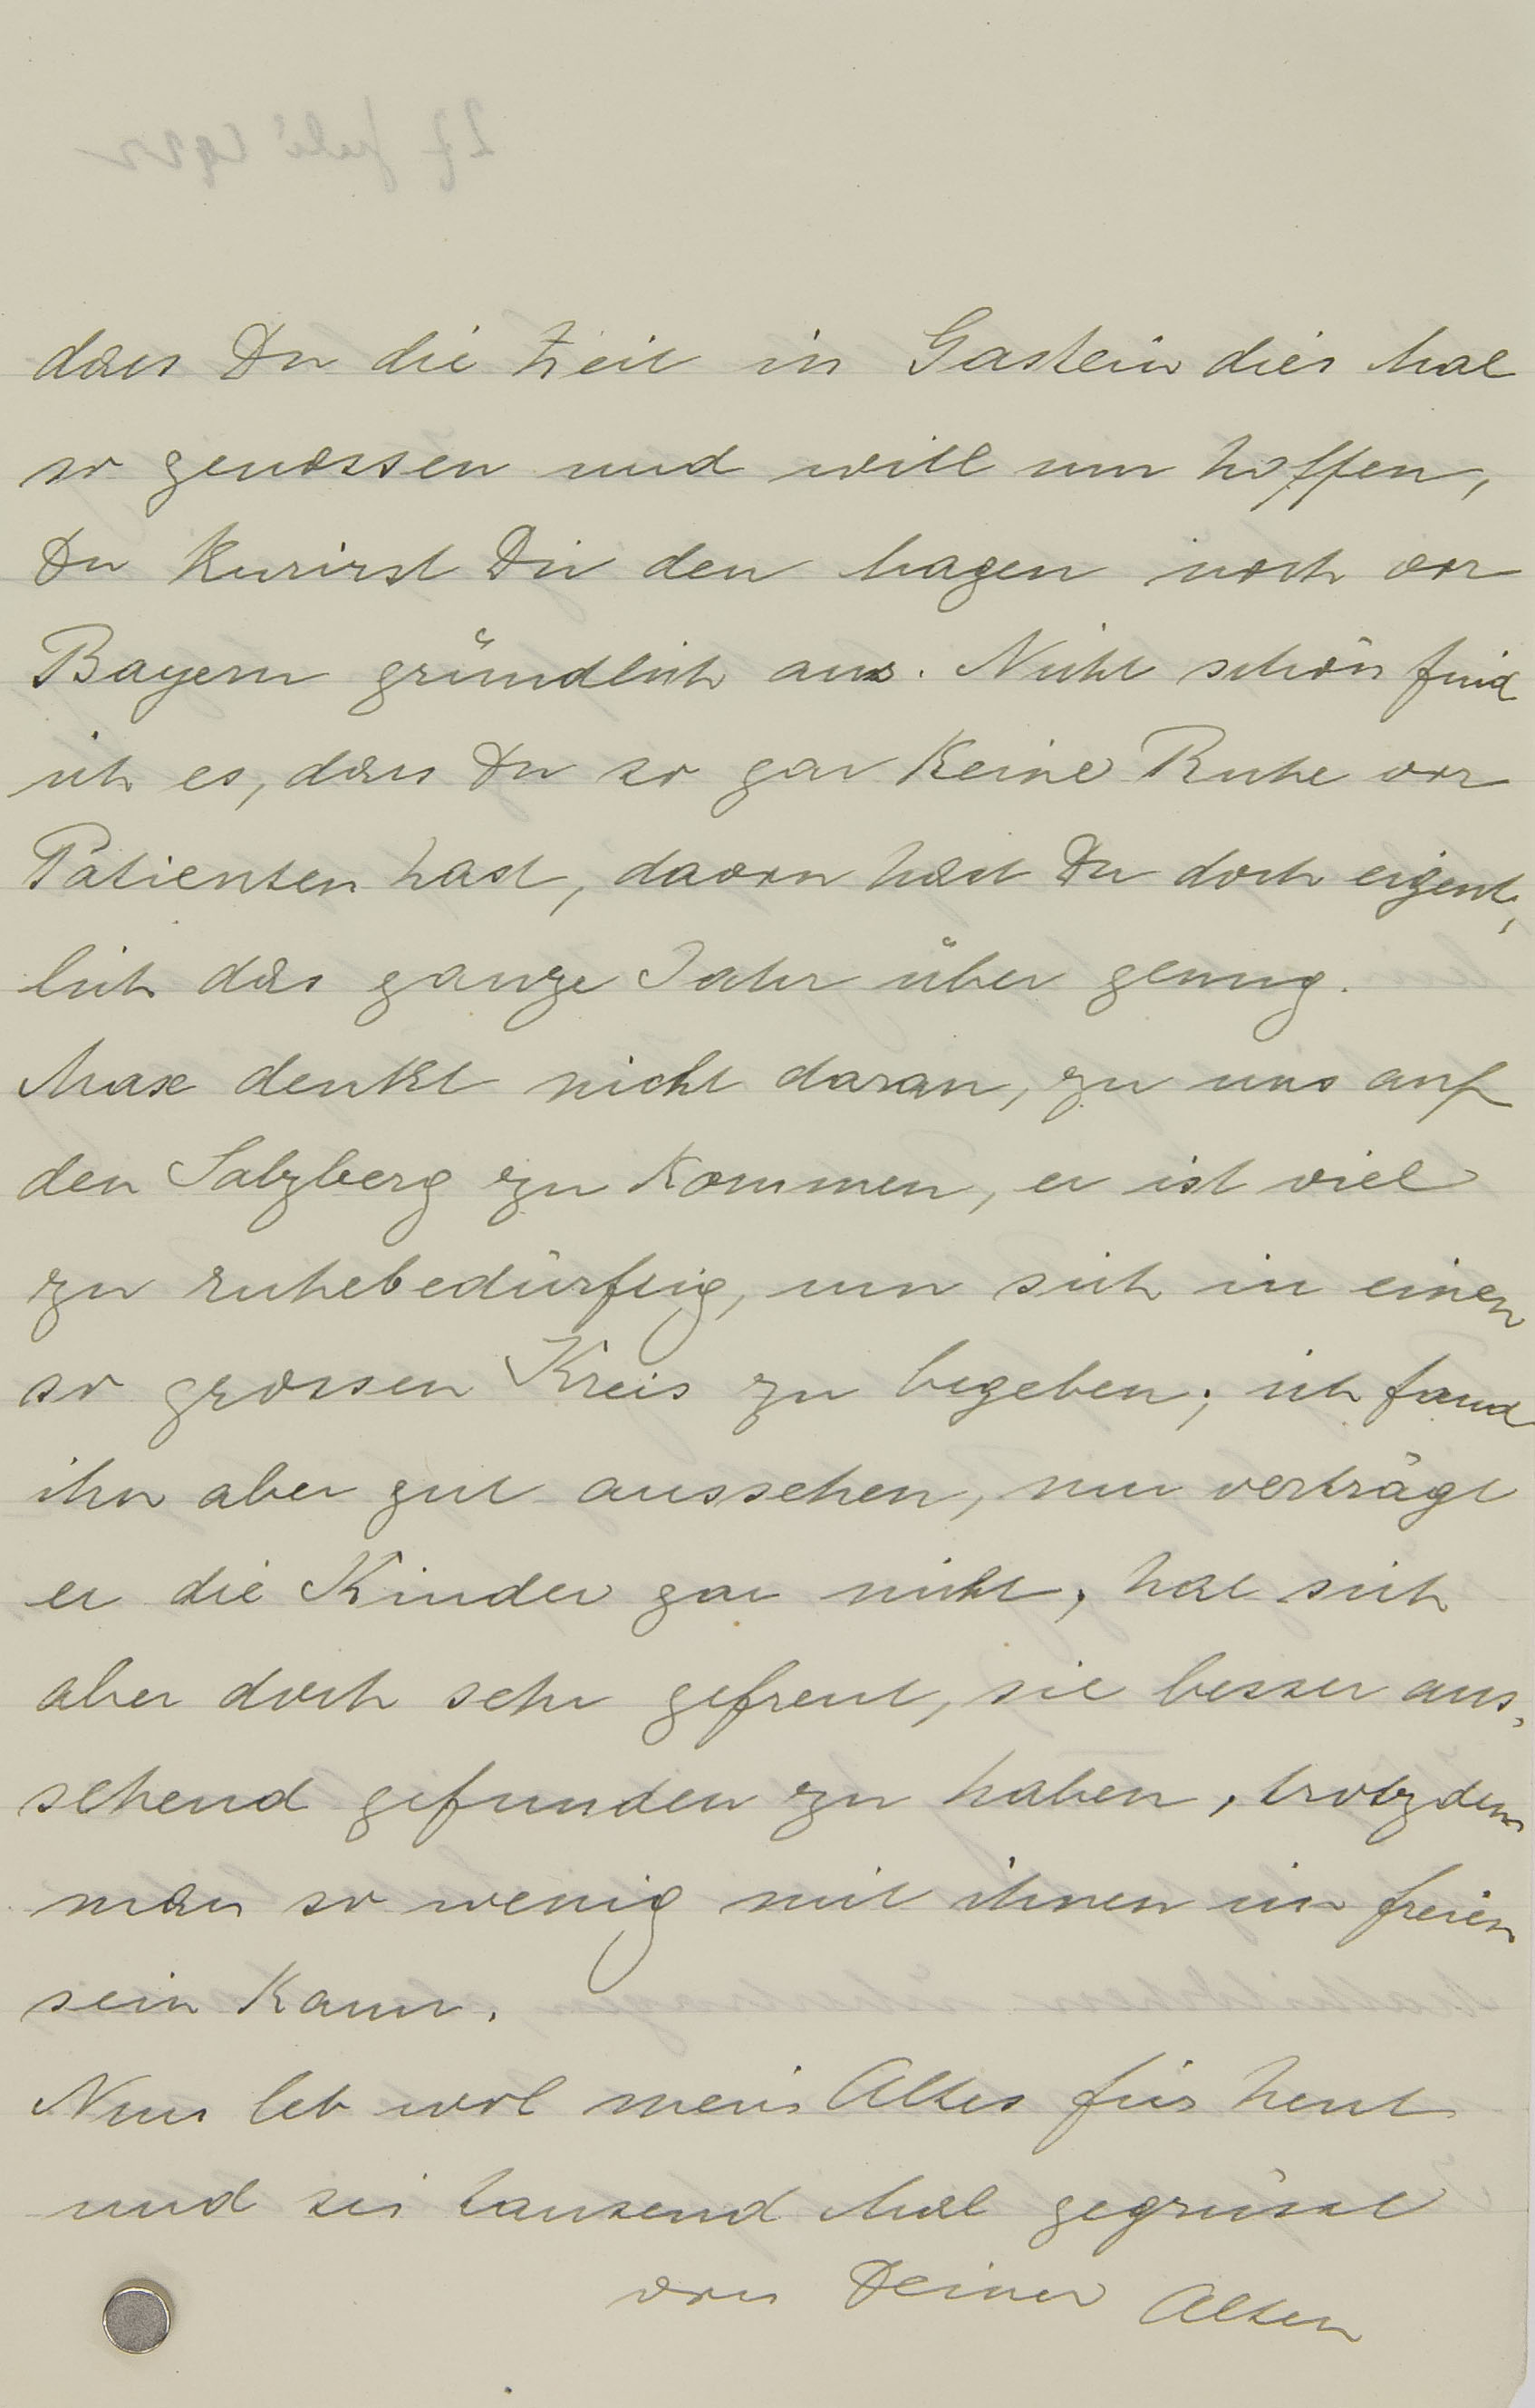 dass Du die Zeit in Gastein dies Mal
so genossen und will nun hoffen,
Du kurirst Dir den Magen noch vor
Bayern gründlich aus. Nicht schön find
ich es, dass Du so gar keine Ruhe vor
Patienten hast, davon hast Du doch eigent,
lich das ganze Jahr über genug.
Max denkt nicht daran, zu uns auf
den Salzberg zu kommen, er ist viel
zu ruhebedürftig, um sich in einen
so grossen Kreis zu begeben; ich fand
ihn aber gut aussehen, nur verträgt
er die Kinder gar nicht, hat sich
aber doch sehr gefreut, sie besser aus,
sehend gefunden zu haben, trotzdem
man so wenig mit ihnen im freien
sein kann.
Nun leb wol mein Altes für heut
und sei tausend Mal gegrüsst
von Deiner Alten